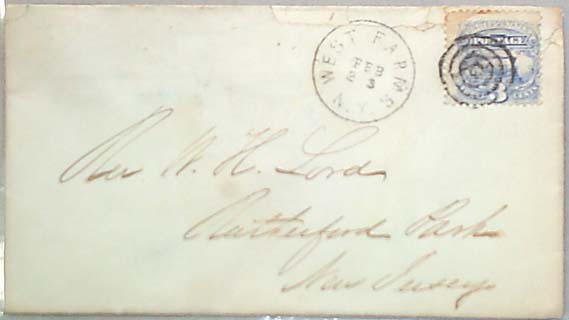 WEST FARMS
FEB
3
N.Y.
POSTAGE
3 CENTS
Rev W. H. Lord
Rutherford Park
New Jersey